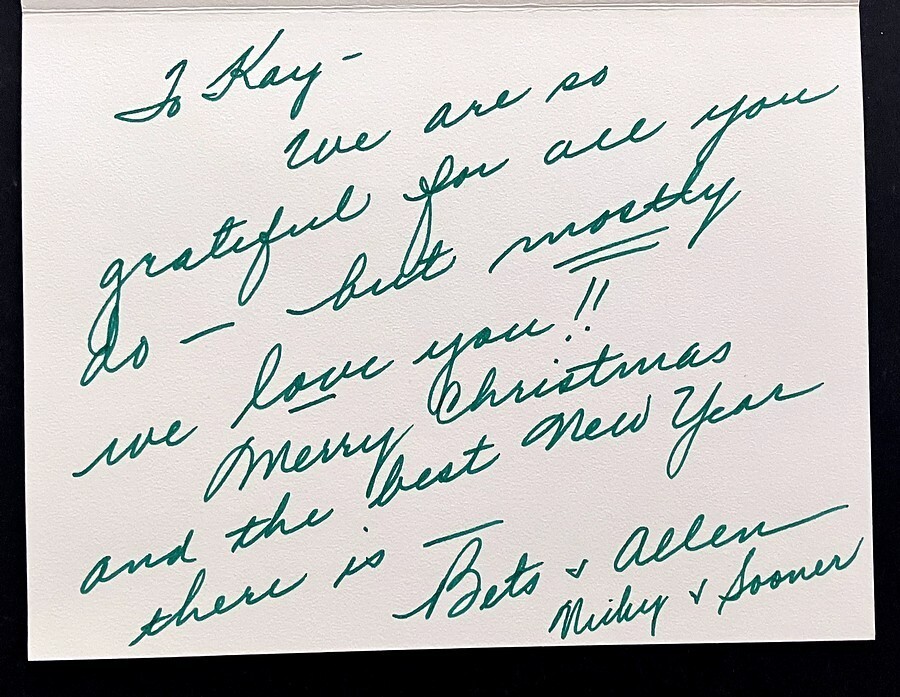 To Kay -
We are so
grateful for all you
do - but mostly
we love you!!
Merry Christmas
and the best New Year
there is -
Bets & Allen
& Sooner